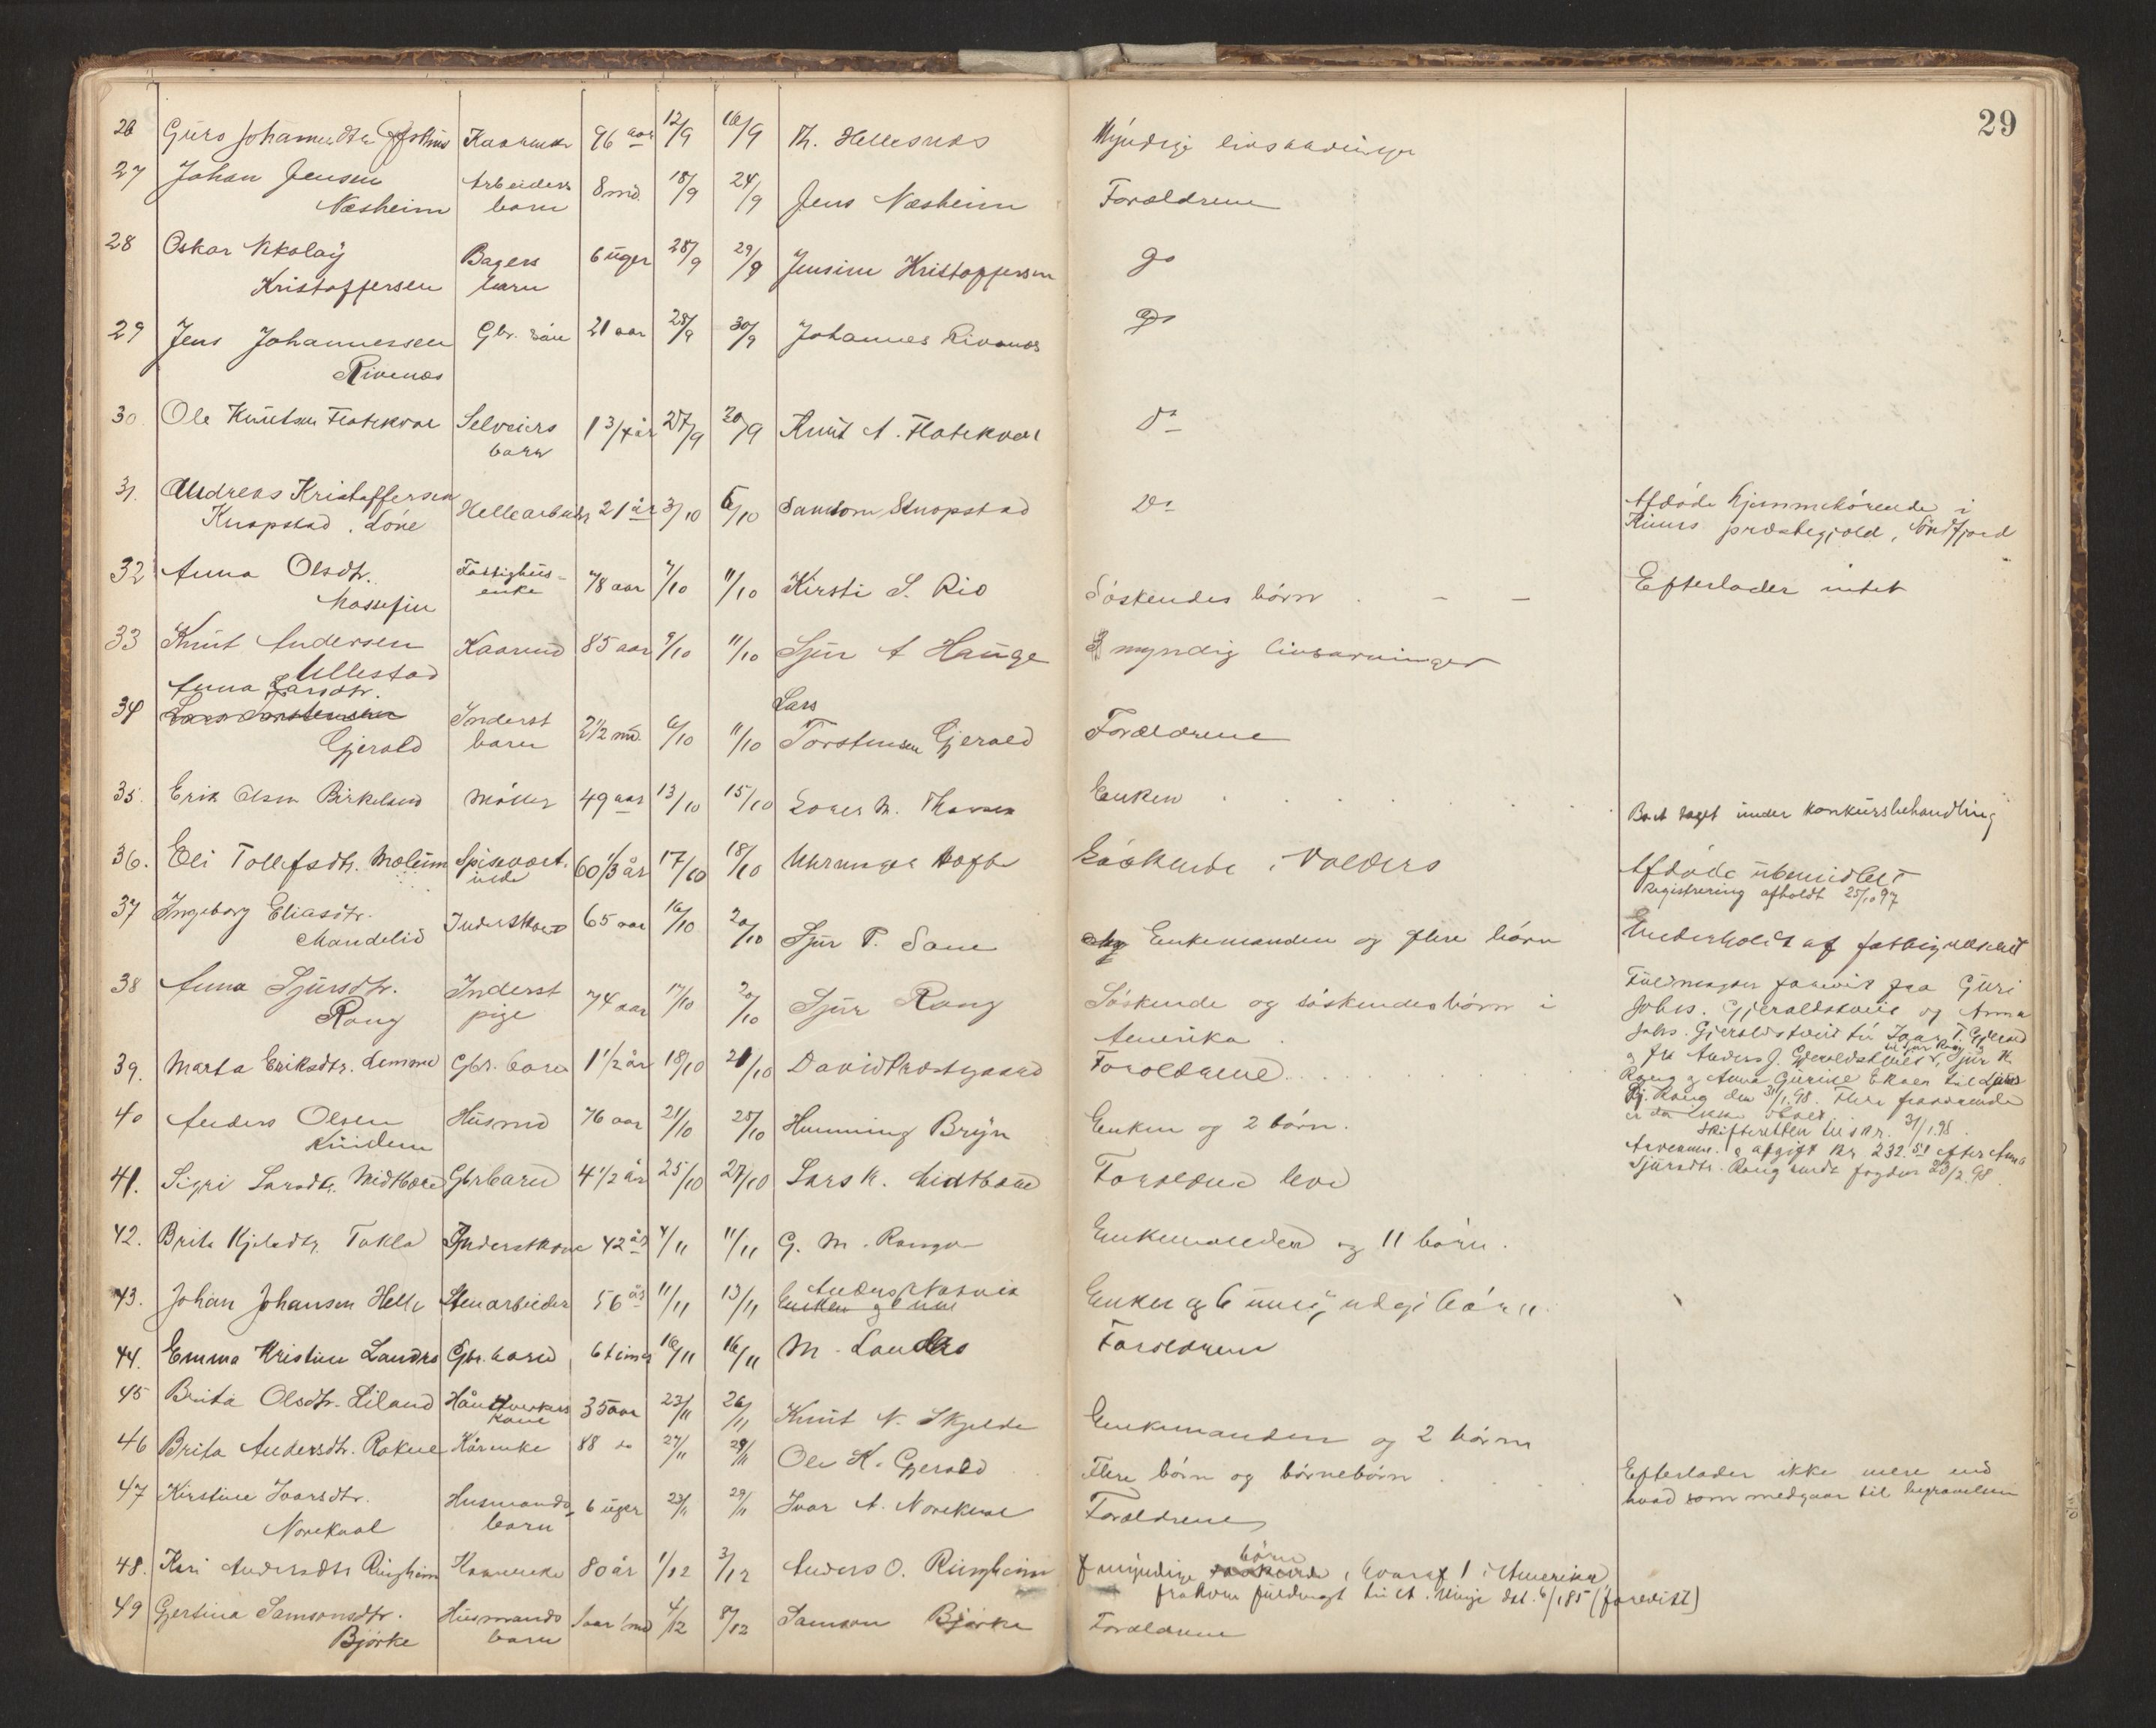 29
26 Guro Johannesdtr Kaarenke 96 aar 12/9 16/9 Th. Hellesnes Myndige livsarvinger
27 Johan Jensen Arbeiders 8 md. 18/9 24/9 Jens Næsheim Forældrene
Næsheim barn
28 Oskar Nikolay Bagers 6 uger 28/9 29/9 Jensine Kristoffersen do
Kristoffersen barn
29 Jens Johannessen Gbr. søn 21 aar 28/9 30/9 Johannes Rivenes do
Rivenæs
30. Ole Knutsen Flatekval Selveiers 1 3/4 år 27/9 30/9 Knut A. Flatekval do
barn
31. Andreas Kristoffersen Hellearbeider 21 år 3/10 5/10 Samson Knapstad do Afdøde hjemmehørende i
Knapstad, Løne Kinns præstegjeld, Søndfjord
32 Anna Olsdtr. Fattighus- 78 aar 7/10 11/10 Kirsti S. Rio Søskendes børn . – – Efterlader intet
enke
33 Knut Andersen Kaarmd 85 aar 9/10 11/10 Sjur A Hauge myndig livsarvinger
Ullestad
Anna Larsdtr. Lars
34 Lars Torstensen Inderst 2 1/2 md. 6/10 11/10 Torstensen Gjerald Forældrene
Gjerald barn
35. Erik Olsen Birkeland Møller 49 aar 13/10 15/10 Enken Boet taget under konkursbehandling
36. Eli Tollefsdtr. Spisevært- 60 1/3 år 17/10 18/10 Søskende i Valders Afdøde ubemidlet
inde Registrering afholdt 25/10 97
37 Ingeborg Eliasdtr. Inderstkone 65 aar 16/10 20/10 Sjur T. Enkemanden og flere børn Underholdt af fattigvæsenet
Mandelid
38 Anna Sjursdtr. Inderst 74 aar 17/10 20/10 Sjur Rong Søskende og søskendesbørn i Fuldmagter forevist fra Guri
Rong pige Amerika Johs. Gjeraldstveit og Anna
Johs. Gjeraldstveit til Ivar T. Gjerald
til Sjur Rong
og fra Anders J. Gjeraldstveit, Sjur K.
Rong og Anna Gurine til Lars
Rong den 31/1.98. Flere fraværende
er da ikke
Skifteretten 31/1.98.
afgift Kr 232.51 efter Anna
Sjursdtr. Rong fogden 23/2.98.
39. Marta Eriksdtr. Lemme Gbr. barn 1 1/2 år 18/10 21/10 David Prestegaard Forældrene
40 Anders Olsen Husmd 76 aar 21/10 25/10 Henning Bryn Enken og 2 børn.
41. Sigri Larsdtr. Midtbøen Gbrbarn 4 1/2 år 25/10 27/10 Lars K. Midtbøen Forældrene leve
42. Brita Kjeladtr. Tokla Inderstkone 42 år 4/11 11/11 G. M. Enkemanden og 11 børn.
Anders
43. Johan Johansen Helle Stenarbeider 56 år 11/11 13/11 Enken og 6 Enken og 6 umyndige børn
44. Emma Kristine Landro Gbr. barn 6 timer 16/11 16/11 M. Landro Forældrene
45 Brita Olsdtr. Liland Håndverkers 35 aar 23/11 26/11 Knut N. Skjelde Enkemanden og 2 børn
kone
46 Brita Andersdtr. Rokne Kårenke 88 do 27/11 29/11 Ole K. Gjerald Flere børn og børnebørn Efterlader ikke mere end
hvad som medgaar til begravelsen
47 Kirstine Ivarsdtr. Husmands 6 uger 23/11 29/11 Ivar A. Norekval Forældrene
Norekval barn
børn
48. Kari Andersdtr Ringheim Kaarenke 80 år 1/12 3/12 Anders O. Ringheim myndige søskende, hvoraf 1 i Amerika
fra hvem fuldmagt til (forevist)
49 Gertina Samsonsdtr. Husmands 1 aar 1 md 4/12 8/12 Samson Bjørke Forældrene
Bjørke barn